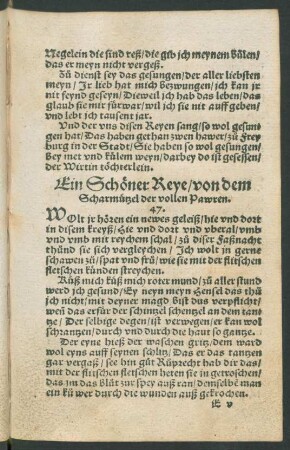 Negelein die sind reß/die gib ich meynem bůlen/
das er meyn nicht vergeß.
Zů dienst sey das gesungen/der aller liebsten
meyn/Jr lieb hat mich bezwungen/ich kan jr
nit feynd geseyn/Dieweil ich hab das leben/das
glaub sie mir fürwar/wil ich sie nit auff geben/
vnd lebt ich tausent jar.
Vnd der vns disen Reyen sang/so wol gesun
gen hat/Das haben gethan zwen hawer/zů Frey
burg in der Stadt/Sie haben so wol gesungen/
bey met vnd külem weyn/darbey do ist gesessen/
der Wirtin töchterlein.
Ein Schöner Reye/von dem
Scharmützel der vollen Pawren.
47.
WOlt jr hören ein newes geleiß/hie vnd dort
in disem kreyß/Hie vnd dort vnd vberal/vmb
vnd vmb mit reychen schal/zů diser Faßnacht
thünd sie sich vergleychen/Jch wolt in gerne
schawen zů/spat vnd frü/wie sie mit der flitschen
fletschen künden streychen.
Küß mich küß mich roter mund/zů aller stund
werd ich gesund/Ey neyn meyn Hensel das thů
ich nicht/mit deyner magd bist dus verpflicht/
weñ das erfür der schintzel schentzel an dem tan
tze/Der selbige degen/ist verwegen/er kan wol
schrantzen/durch vnd durch die haut so gantze.
Der eyne hieß der waschen gritz/dem ward
wol eyns auff seynen schlitz/Das er das tantzen
gar vergaß/se hin gůt Růprecht hab dir das/
mit der flitschen fletschen heten sie in getroschen/
das jm das Blůt zur spey auß ran/demselbe man
ein ků wer durch die wunden auß gekrochen.
E v